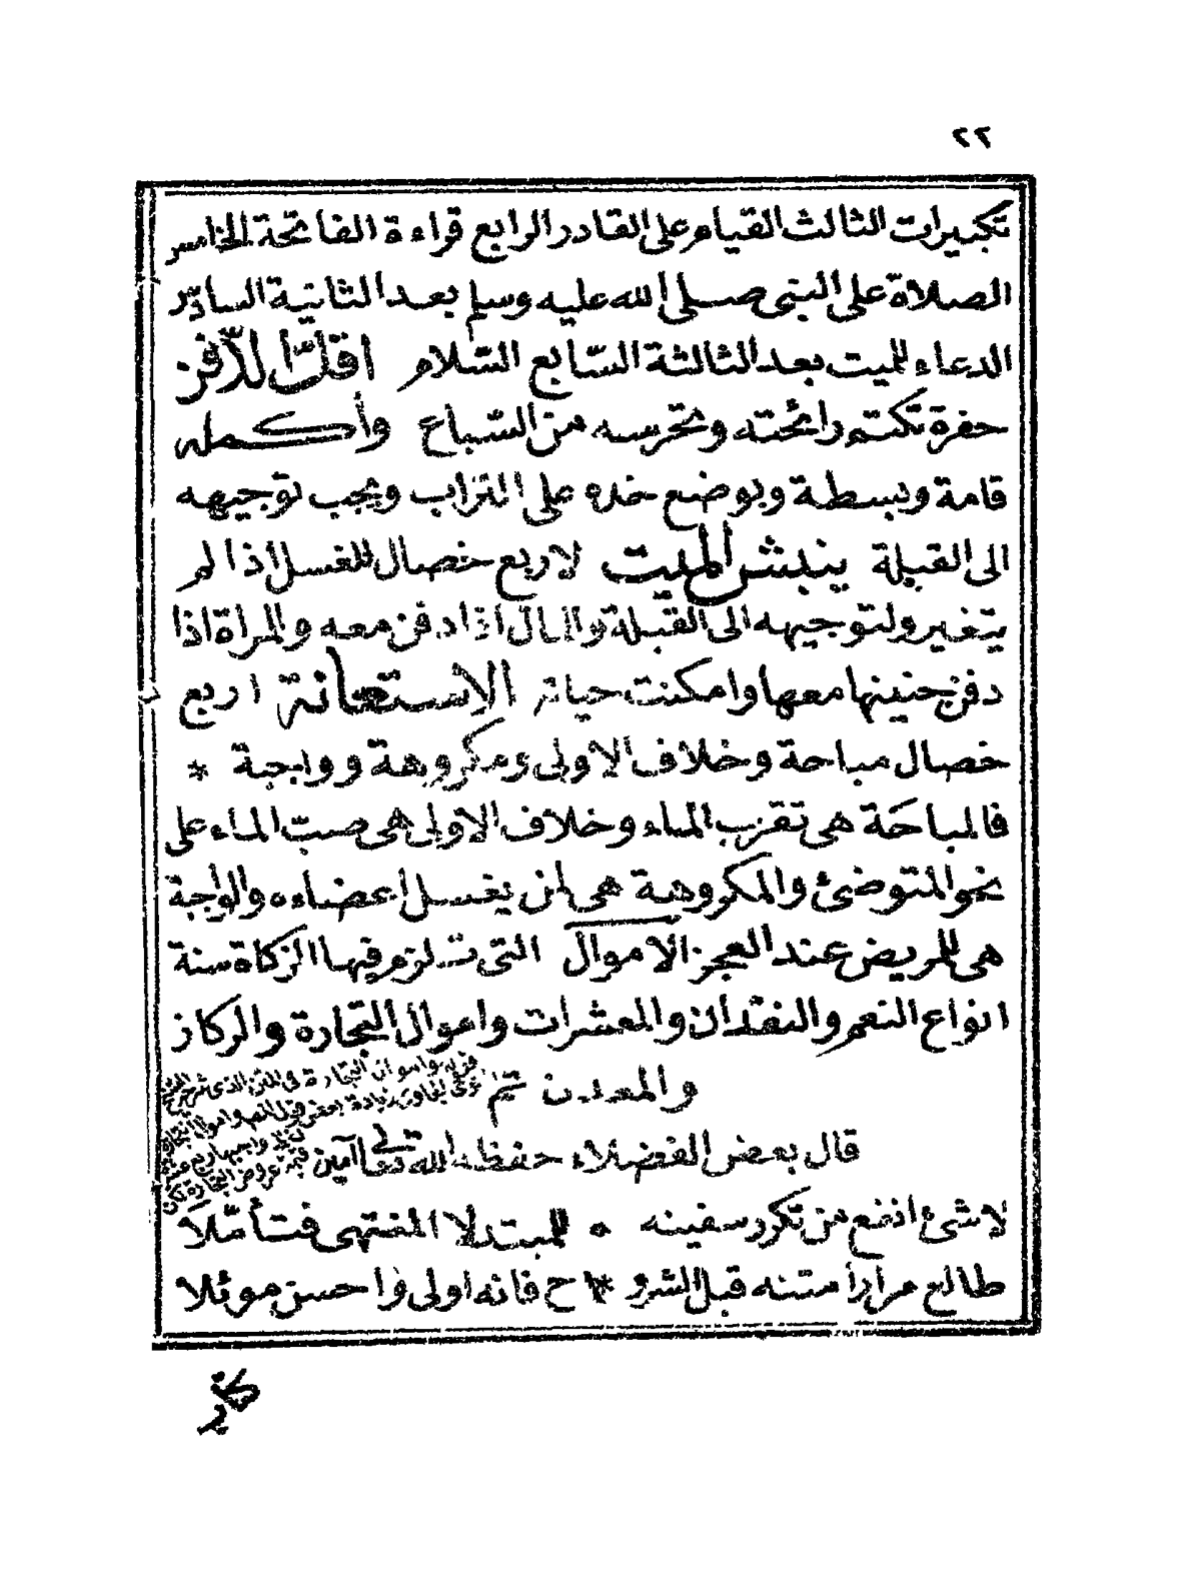 ٢٢
تكبيرات الثالث القيام على القادر الرابع قراءة الفاتحة الخامس
الصلاة على النبى صلى الله عليه وسلم بعد الثانية السادس
الدعاء للميت بعد الثالثة السّابع السّلام اقلّ الدّفن
حفرة تكتم رائحته وتحرسه من السّباع وأكمله
قامة وبسطة ويوضع خده على التراب ويجب توجيهه
الى القبلة ينبش الميت لاربع خصال للغسل اذا لم
يتغير ولتوجيهه الى القبلة والمال اذا دفن معه والمراة اذا
دفن جنينها معها وامكنت حياته الاستعانة اربع
خصال مباحة وخلاف الاولى ومكروهة وواجبة *
فالمباحة هى تقريب الماء وخلاف الاولى هى صبّ الماء على
نحو المتوضئ والمكروهة هى لمن يغسل اعضاءه والواجبة
هى للمريض عند العجز الاموال التى تلزم فيها الزكاة ستة
انواع النعم والنقدان والمعشرات واموال التجارة والركاز
والمعدن تمّ
قال بعض الفضلاء حفظه الله تعالى آمين
لا شئ انفع من تكرر سفينه ٠ للمبتدلا المنتهى فتأمّلا
طالع مراراً متنه قبل الشرو * ح فانه اولى واحسن موئلا